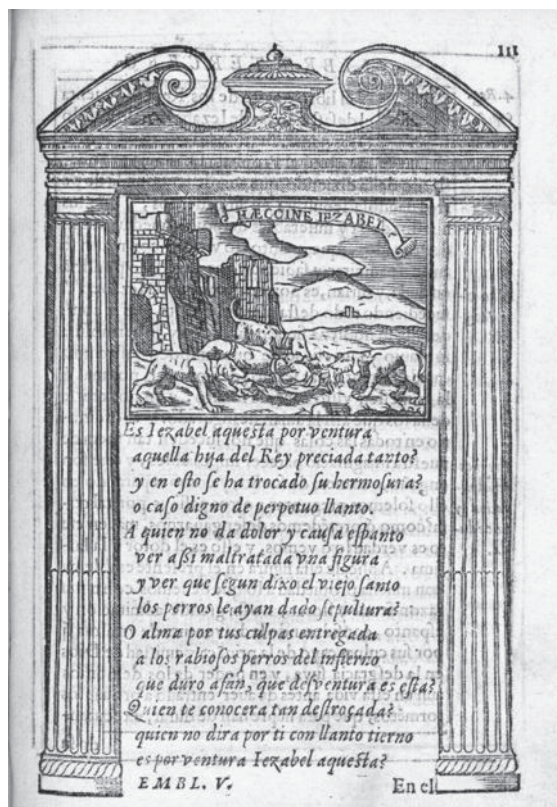 111
HÆCCINE IEZABEL.
Es Iezabel aqueſta por ventura
aquella hija del Rey preciada tanto?
y en eſto ſe ha trocado ſu hermoſura?
o caſo digno de perpetuo llanto.
A quien no da dolor y cauſa eſpanto
ver aſſi maltratada vna figura
y ver que ſegun dixo el viejo ſanto
los perros le ayan dado ſepultura?
O alma por tus culpas entregada
a los rabioſos perros del infierno
que duro afan, que deſventura es eſta?
Quien te conocera tan deſtroçada?
quien no dira por ti con llanto tierno
es por ventura Iezabel aqueſta?
EMBL. V.
En el